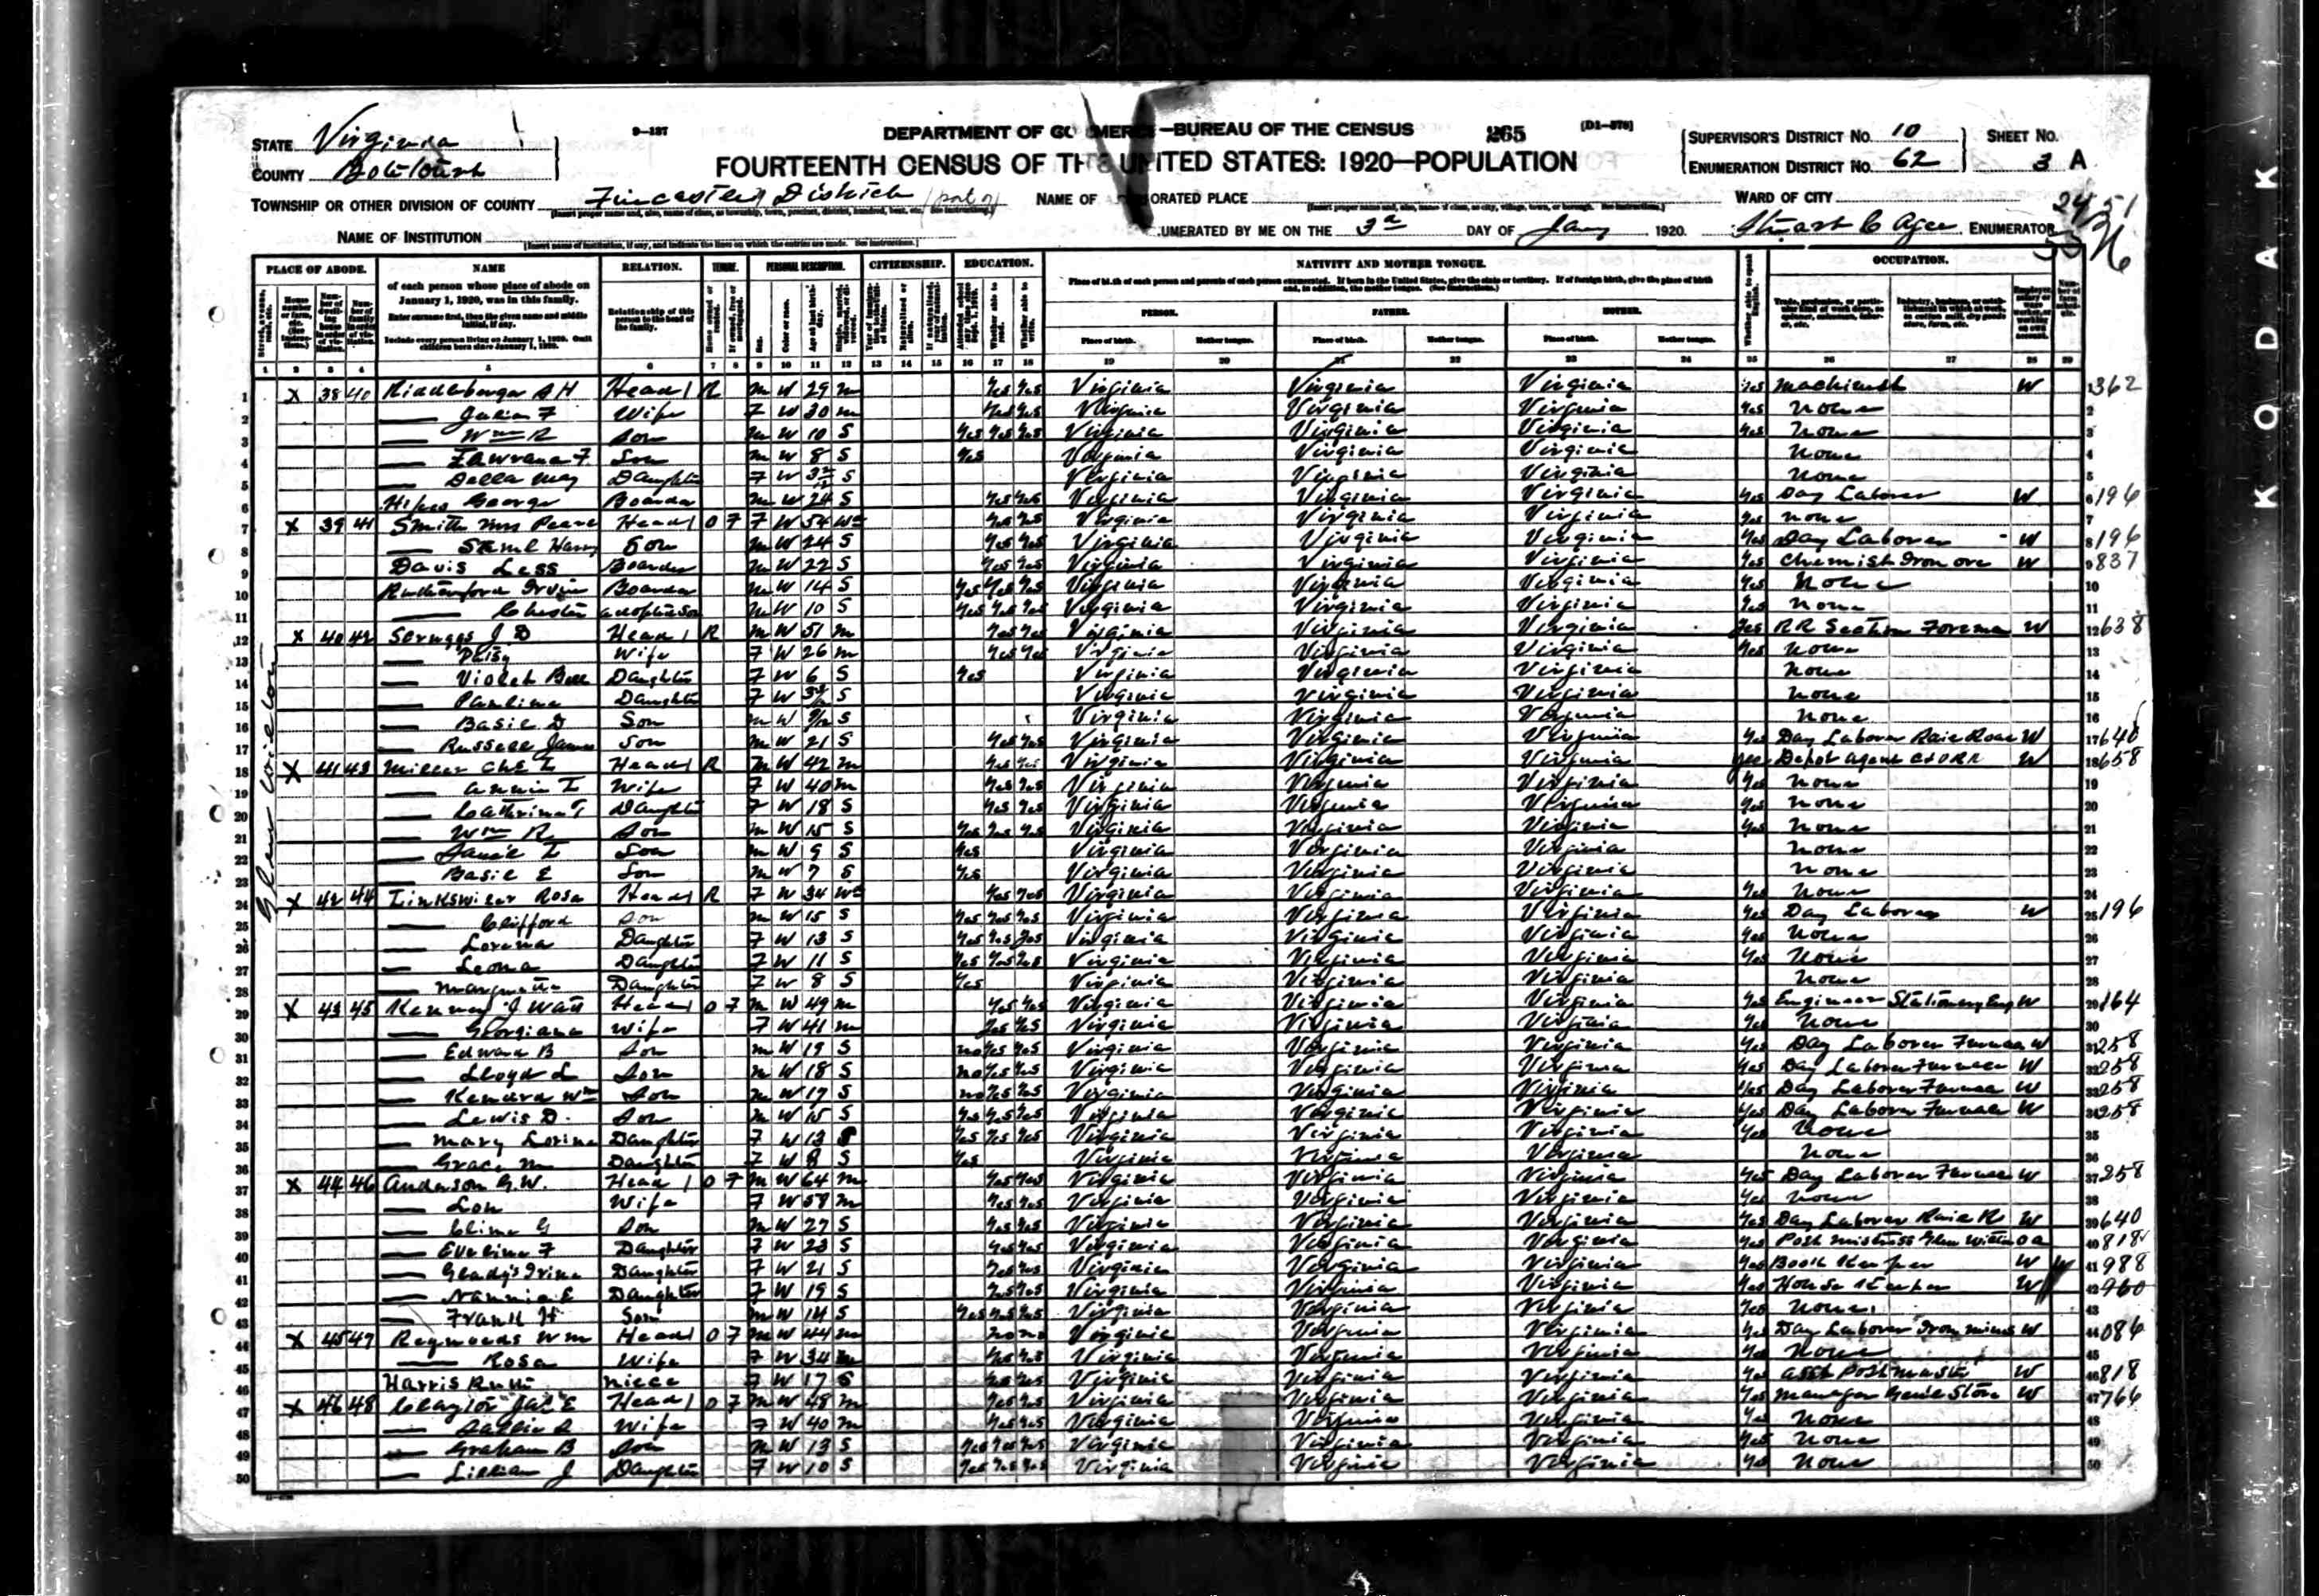 9-137
DEPARTMENT OF COMMERCE—BUREAU OF THE CENSUS
265
[D1-578]
STATE Virginia
COUNTY Botetourt
FOURTEENTH CENSUS OF THE UNITED STATES: 1920—POPULATION
SUPERVISOR'S DISTRICT No. 10
ENUMERATION DISTRICT No. 62
SHEET No. 3 A
TOWNSHIP OR OTHER DIVISION OF COUNTY Fincastle District (part of)
NAME OF ORATED PLACE
WARD OF CITY
2451
NAME OF INSTITUTION
UMERATED BY ME ON THE 3d DAY OF Jany, 1920. Stuart C Agee, ENUMERATOR
PLACE OF ABODE. NAME RELATION. TENURE. PERSONAL DESCRIPTION. CITIZENSHIP. EDUCATION. NATIVITY AND MOTHER TONGUE. OCCUPATION.
of each person whose place of abode on January 1, 1920, was in this family.
Enter surname first, then the given name and middle initial, if any.
Include every person living on January 1, 1920. Omit children born since January 1, 1920.
Relationship of this person to the head of the family.
PERSON. FATHER. MOTHER.
Place of birth. Mother tongue. Place of birth. Mother tongue. Place of birth. Mother tongue.
1 2 3 4 5 6 7 8 9 10 11 12 13 14 15 16 17 18 19 20 21 22 23 24 25 26 27 28 29
Glen Wilton
1 X 38 40 A H Head 1 R M W 29 M Yes Yes Virginia Virginia Virginia Yes Machinist W 1 362
2 Julian F Wife F W 30 M Yes Yes Virginia Virginia Virginia Yes None 2
3 Wm R Son M W 10 S Yes Yes Yes Virginia Virginia Virginia Yes None 3
4 F Son M W 8 S Yes Virginia Virginia Virginia None 4
5 Della May Daughter F W S Virginia Virginia Virginia None 5
6 Hipes George Boarder M W 24 S Yes Yes Virginia Virginia Virginia Yes Day Laborer W 6 196
7 X 39 41 Smith Mrs Head 1 O F F W 54 Wd Yes Yes Virginia Virginia Virginia Yes None 7
8 Saml Harry Son M W 24 S Yes Yes Virginia Virginia Virginia Yes Day Laborer W 8 196
9 Davis Less Boarder M W 22 S Yes Yes Virginia Virginia Virginia Yes Chemist Iron ore W 9 837
10 Rutherford Irvin Boarder M W 14 S Yes Yes Yes Virginia Virginia Virginia Yes None 10
11 Chester M W 10 S Yes Yes Yes Virginia Virginia Virginia Yes None 11
12 X 40 42 Scruggs J D Head 1 R M W 51 M Yes Yes Virginia Virginia Virginia Yes RR Section Foreman W 12 638
13 Wife F W 26 M Yes Yes Virginia Virginia Virginia Yes None 13
14 Violet Bell Daughter F W 6 S Yes Virginia Virginia Virginia None 14
15 Pauline Daughter F W S Virginia Virginia Virginia None 15
16 Basil D Son M W S Virginia Virginia Virginia None 16
17 Russell James Son M W 21 S Yes Yes Virginia Virginia Virginia Yes Day Laborer Rail Road W 17 640
18 X 41 43 Miller Head 1 R M W 42 M Yes Yes Virginia Virginia Virginia Yes Depot Agent C&O RR W 18 658
19 Annie L Wife F W 40 M Yes Yes Virginia Virginia Virginia Yes None 19
20 Catherine T Daughter F W 18 S Yes Yes Virginia Virginia Virginia Yes None 20
21 Wm R Son M W 15 S Yes Yes Yes Virginia Virginia Virginia Yes None 21
22 Son M W 9 S Yes Virginia Virginia Virginia None 22
23 Basil E Son M W 7 S Yes Virginia Virginia Virginia None 23
24 X 42 44 Linkswiler Rosa Head 1 R F W 34 Wd Yes Yes Virginia Virginia Virginia Yes None 24
25 Clifford Son M W 15 S Yes Yes Yes Virginia Virginia Virginia Yes Day Laborer W 25 196
26 Lorena Daughter F W 13 S Yes Yes Yes Virginia Virginia Virginia Yes None 26
27 Leona Daughter F W 11 S Yes Yes Yes Virginia Virginia Virginia Yes None 27
28 Daughter F W 8 S Yes Virginia Virginia Virginia None 28
29 X 43 45 J Watt Head 1 O F M W 49 M Yes Yes Virginia Virginia Virginia Yes Engineer Stationery Eng W 29 164
30 Georgiana Wife F W 41 M Yes Yes Virginia Virginia Virginia Yes None 30
31 Edward B Son M W 19 S no Yes Yes Virginia Virginia Virginia Yes Day Laborer Furnace W 31 258
32 Lloyd L Son M W 18 S no Yes Yes Virginia Virginia Virginia Yes Day Laborer Furnace W 32 258
33 Wm Son M W 17 S no Yes Yes Virginia Virginia Virginia Yes Day Laborer Furnace W 33 258
34 Lewis D. Son M W 15 S Yes Yes Yes Virginia Virginia Virginia Yes Day Laborer Furnace W 34 258
35 Mary Lorine Daughter F W 13 S Yes Yes Yes Virginia Virginia Virginia Yes None 35
36 Grace M Daughter F W 8 S Yes Virginia Virginia Virginia None 36
37 X 44 46 Anderson G. W. Head 1 O F M W 64 M Yes Yes Virginia Virginia Virginia Yes Day Laborer Furnace W 37 258
38 Lou Wife F W M Yes Yes Virginia Virginia Virginia Yes None 38
39 G Son M W 27 S Yes Yes Virginia Virginia Virginia Yes Day Laborer Rail R W 39 640
40 Eveline F Daughter F W 23 S Yes Yes Virginia Virginia Virginia Yes Post Mistress Glen Wilton OA 40 818
41 Gladys Irine Daughter F W 21 S Yes Yes Virginia Virginia Virginia Yes Book Keeper W 41 988
42 Nannie E Daughter F W 19 S Yes Yes Virginia Virginia Virginia Yes House Keeper W 42 960
43 Frank H Son M W 14 S Yes Yes Yes Virginia Virginia Virginia Yes None 43
44 X 45 47 Reynolds Wm Head 1 O F M W 44 M no no Virginia Virginia Virginia Yes Day Laborer Iron mines W 44 086
45 Rosa Wife F W 34 M Yes Yes Virginia Virginia Virginia Yes None 45
46 Harris Ruth Niece F W 17 S Yes Yes Virginia Virginia Virginia Yes Asst Postmaster W 46 818
47 X 46 48 Claytor Head 1 O F M W 48 M Yes Yes Virginia Virginia Virginia Yes Manager Genl Store W 47 766
48 Sallie Wife F W 40 M Yes Yes Virginia Virginia Virginia Yes None 48
49 Graham B Son M W 13 S Yes Yes Yes Virginia Virginia Virginia Yes None 49
50 Lillian J Daughter F W 10 S Yes Yes Yes Virginia Virginia Virginia Yes None 50
KODAK